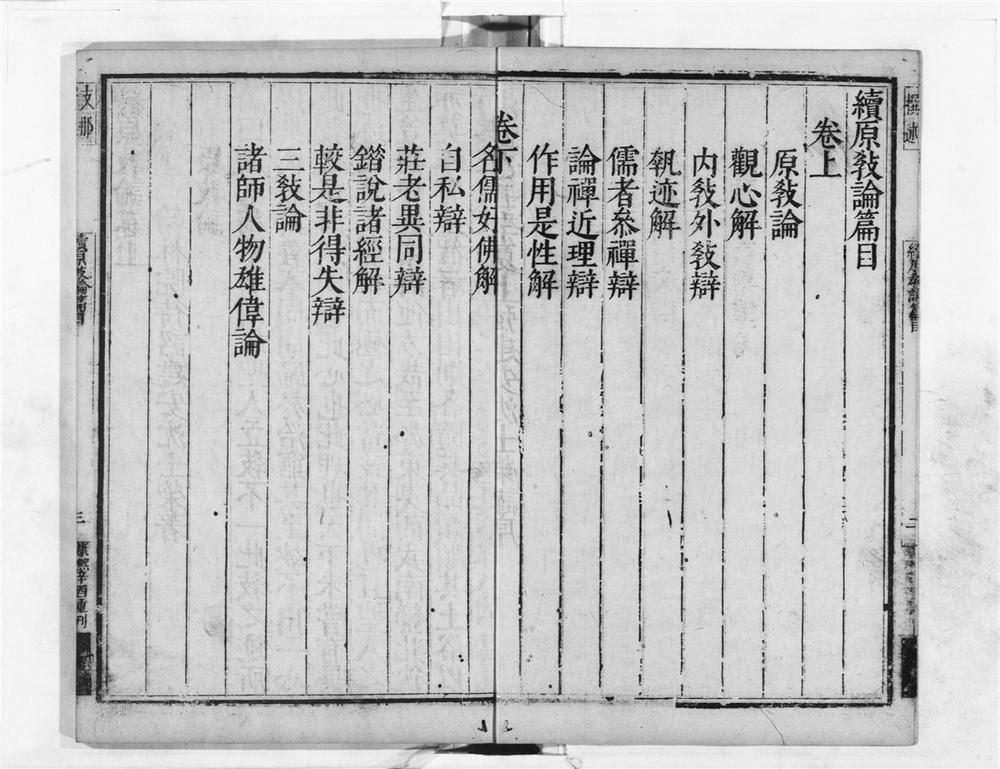 續原敎論篇目
卷上
原敎論
觀心解
內敎外敎辯
執迹解
儒者參禪辯
論禪近理辯
作用是性解
卷下
名儒好佛解
自私辯
莊老異同辯
錯說諸經解
較是非得失辯
三敎論
諸師人物雄偉論
撰述
續原敎論篇目
二
支那
續原敎論篇目
三